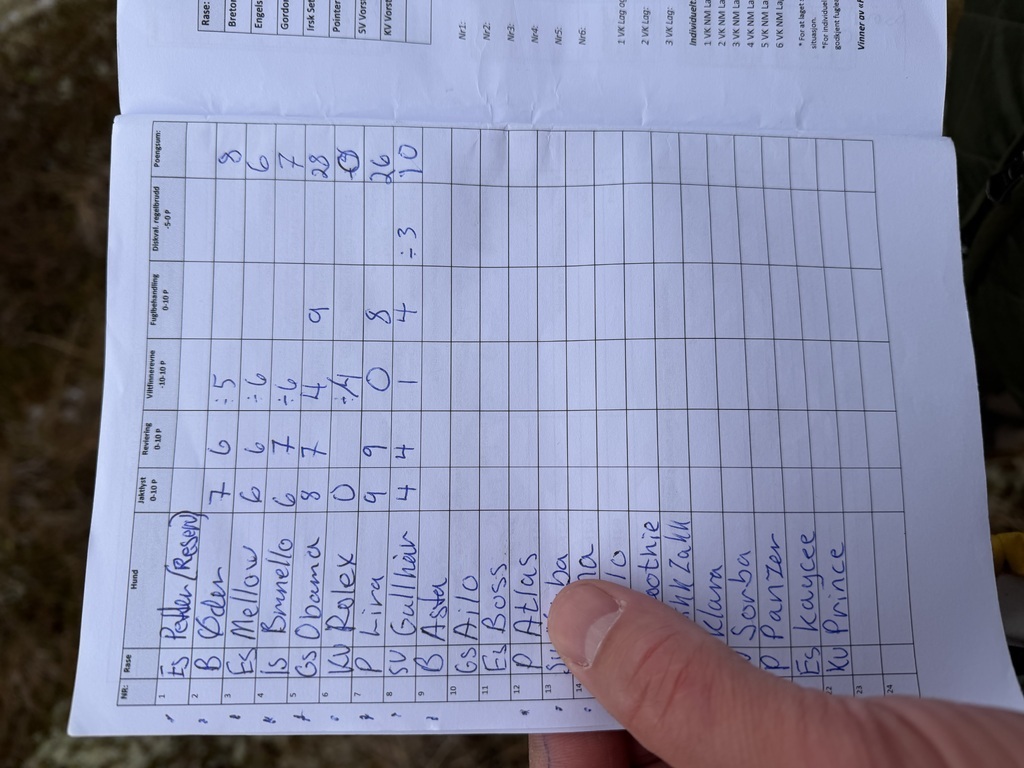 Rase:
Breton
Engels
Gordon
Irsk Set
Pointer
SV Vorst
KV Vorst
Nr1:
Nr2:
Nr3:
Nr4:
Nr5:
Nr6:
1 VK Lag og
2 VK Lag:
3 VK Lag:
Individuelt:
1 VK NM La
2 VK NM La
3 VK NM La
4 VK NM La
5 VK NM La
6 VK NM La
* For at laget s
situasjon.
*For individuel
godkjent fugles
Vinner av «F
NR: Rase Hund Jaktlyst 0-10 P Reviering 0-10 P Viltfinnerevne -10-10 P Fuglbehandling 0-10 P Diskval. regelbrudd -5-0 P Poengsum:
1 ES Petter (Reserv)
2 B Oden 7 6 ÷5 8
3 ES Mellow 6 6 ÷6 6
4 IS Brunello 6 7 ÷6 7
5 GS Obama 8 7 4 9 28
6 KV Rolex 0 ÷4
7 P Lira 9 9 0 8 26
8 SV 4 4 1 4 ÷3 10
9 B Asta
10 GS Ailo
11 ES Boss
12 P Atlas
13 ba
14 na
lo
Klara
V Somba
P Panzer
ES Kaycee
22 KV Prince
23
24